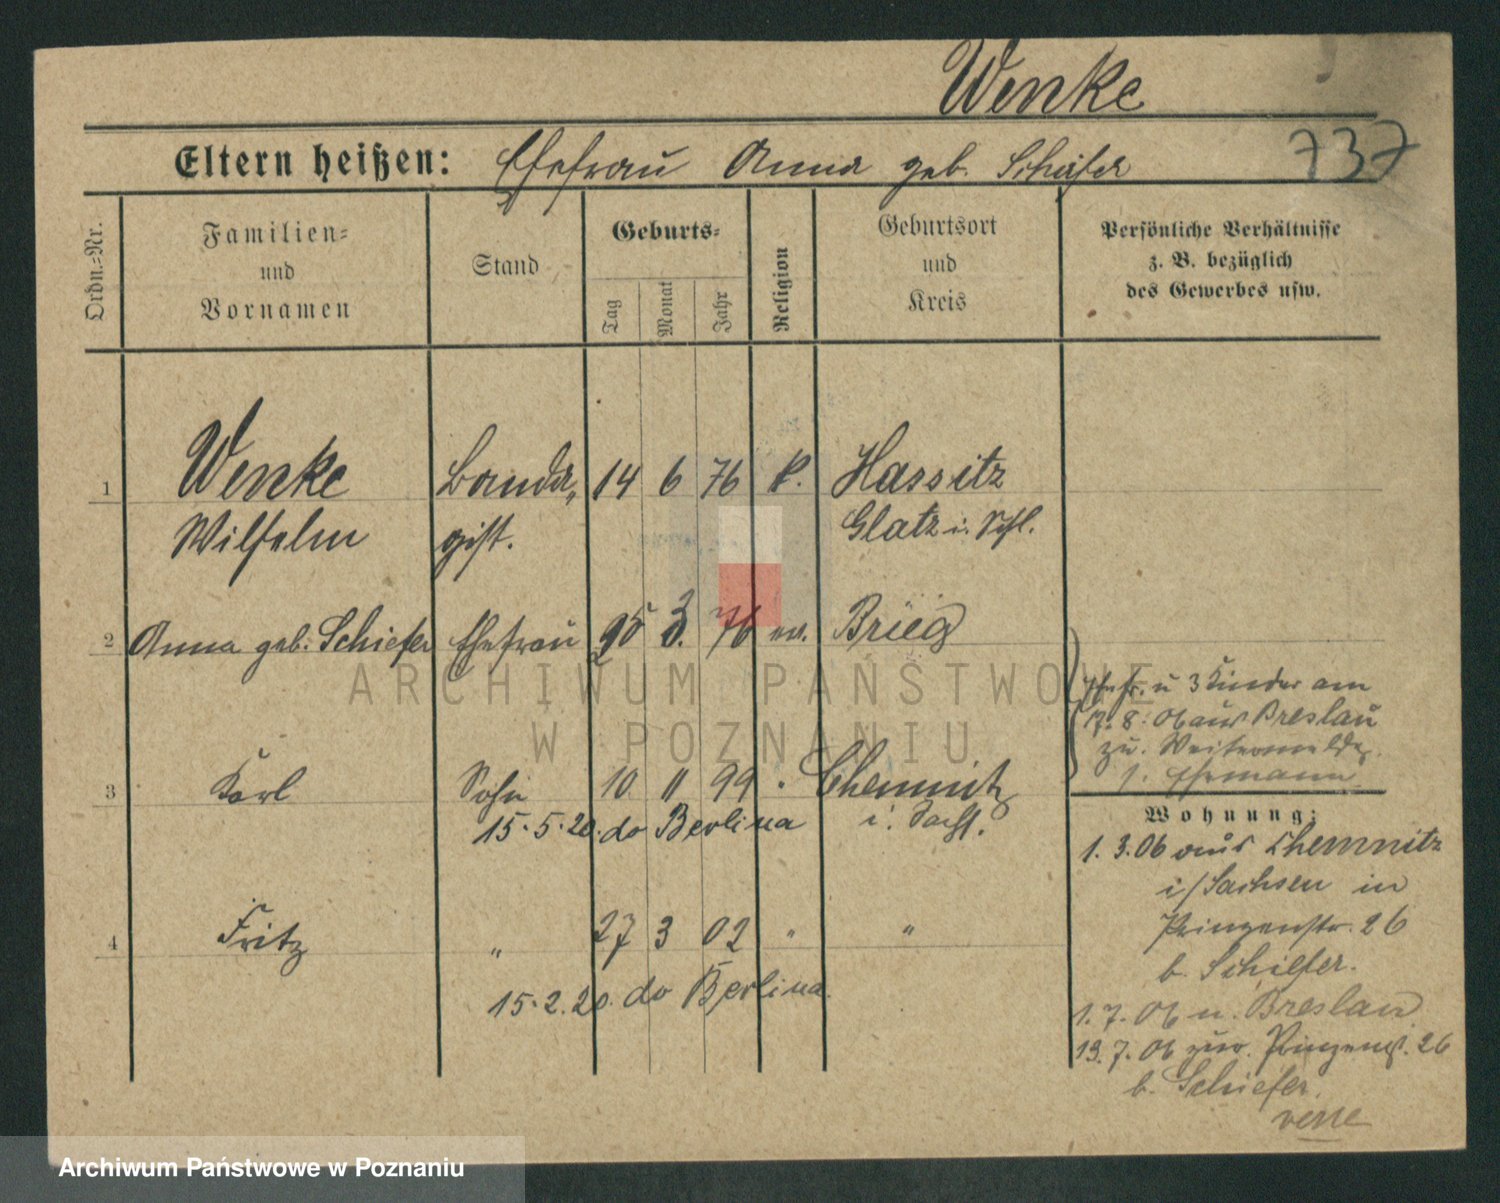 Wenke
Eltern heißen: Ehefrau Anna geb. Schäfer
737
Ordn.-Nr.
Familien-
und
Vornamen
Stand
Geburts-
Tag
Monat
Jahr
Religion
Geburtsort
und
Kreis
Persönliche Verhältnisse
z. B. bezüglich
des Gewerbes usw.
1 Wenke Banda- 14 6 76 k. Hassitz
Wilhelm gist. Glatz i. Schl.
2 Anna geb. Schiefer Ehefrau 25 3. 76 ev. Brieg
Ehefr. u 3 Kinder am
17. 8. 06 aus Breslau
zu.
s. Ehemann
3 Karl Sohn 10 11 99 " Chemnitz
15. 5. 20. do Berlina i. Sachs.
4 Fritz " 27 3 02 " "
15. 2. 20. do Berlina.
Wohnung:
1. 3. 06 aus Chemnitz
i/Sachsen in
Prinzenstr. 26
b. Schiefer.
1. 7. 06 n. Breslau
13. 7. 06 zur. Prinzenstr. 26
b. Schiefer.
verte
ARCHIWUM PAŃSTWOWE
W POZNANIU
Archiwum Państwowe w Poznaniu